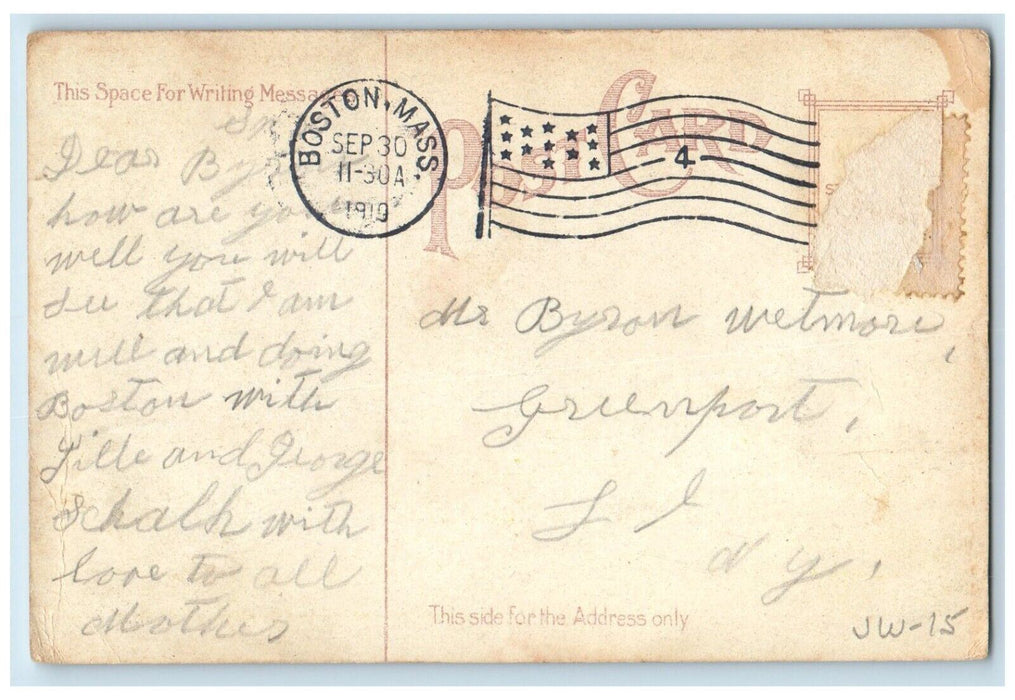 This Space For Writing Message
Dear Byron
how are you
well you will
see that I am
well and doing
Boston with
Tille and George
Schalk with
love to all
Mother
BOSTON, MASS.
SEP 30
11-30A
1910
4
POST CARD
Mr Byron Wetmore,
Greenport,
L I
N Y,
This side for the Address only
JW-15